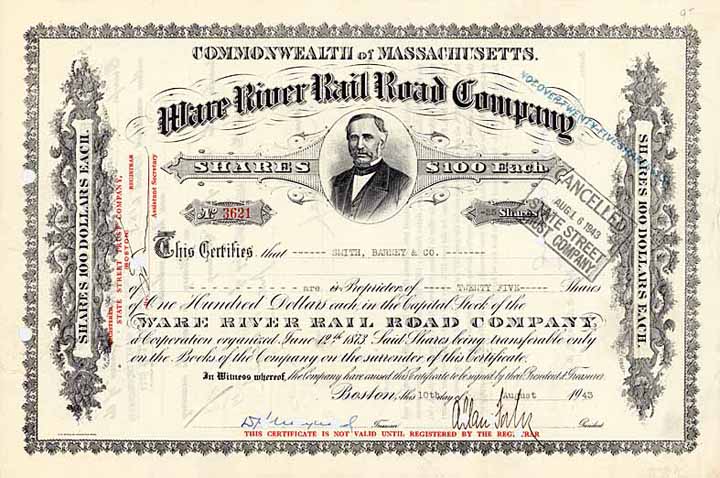 COMMONWEALTH of MASSACHUSETTS.
Ware River Rail Road Company
NOT OVER TWENTY-FIVE SHARES
SHARES $100 Each
No 3621
25 Shares
CANCELLED
AUG 16 1943
STATE STREET
TRUST COMPANY
SHARES 100 DOLLARS EACH.
SHARES 100 DOLLARS EACH.
STATE STREET TRUST COMPANY,
BOSTON
REGISTRAR
Assistant Secretary
This Certifies that ----- SMITH, BARNEY & CO. -----
of - - - - - are is Proprietor of ----- TWENTY FIVE ----- Shares
of One Hundred Dollars each, in the Capital Stock of the
WARE RIVER RAIL ROAD COMPANY,
a Corporation organized June 12th 1873. Said Shares being transferable only
on the Books of the Company on the surrender of this Certificate.
In Witness whereof, the Company have caused this Certificate to be signed by their President & Treasurer.
Boston, this 10th day of August 1943
Treasurer
President
THIS CERTIFICATE IS NOT VALID UNTIL REGISTERED BY THE REGISTRAR